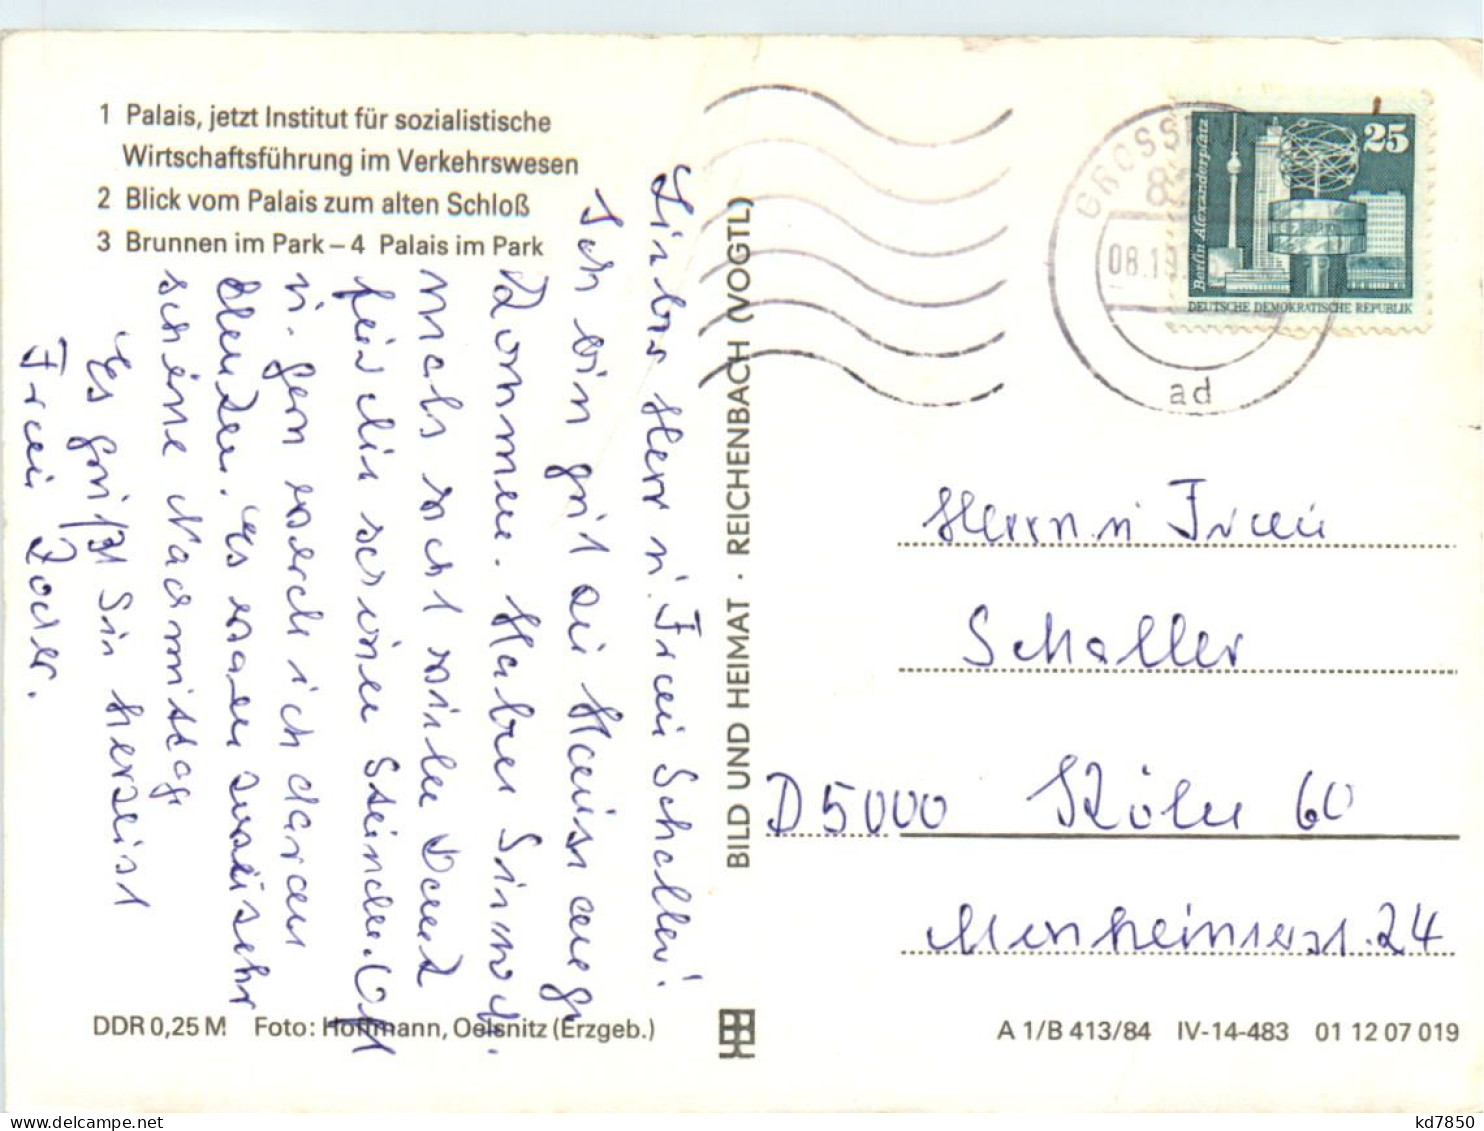 1 Palais, jetzt Institut für sozialistische
Wirtschaftsführung im Verkehrswesen
2 Blick vom Palais zum alten Schloß
3 Brunnen im Park – 4 Palais im Park
Liebe Herr u. Frau Schaller!
Ich bin gut zu Hause ange
kommen. Haben Sie noch
mals recht vielen Dank
für die schönen Stunden. Oft
u. gern werde ich daran
denken. Es war
schöne Nachmittag
Es grüßt Sie herzlist
Frau Zoder.
BILD UND HEIMAT · REICHENBACH (VOGTL)
GROSS
08.1
ad
Berlin Alexanderplatz
25
DEUTSCHE DEMOKRATISCHE REPUBLIK
Herrn u Frau
Schaller
D 5000 Köln 60
24
DDR 0,25 M Foto: Hoffmann, Oelsnitz (Erzgeb.)
A 1/B 413/84 IV-14-483 01 12 07 019
kd7850